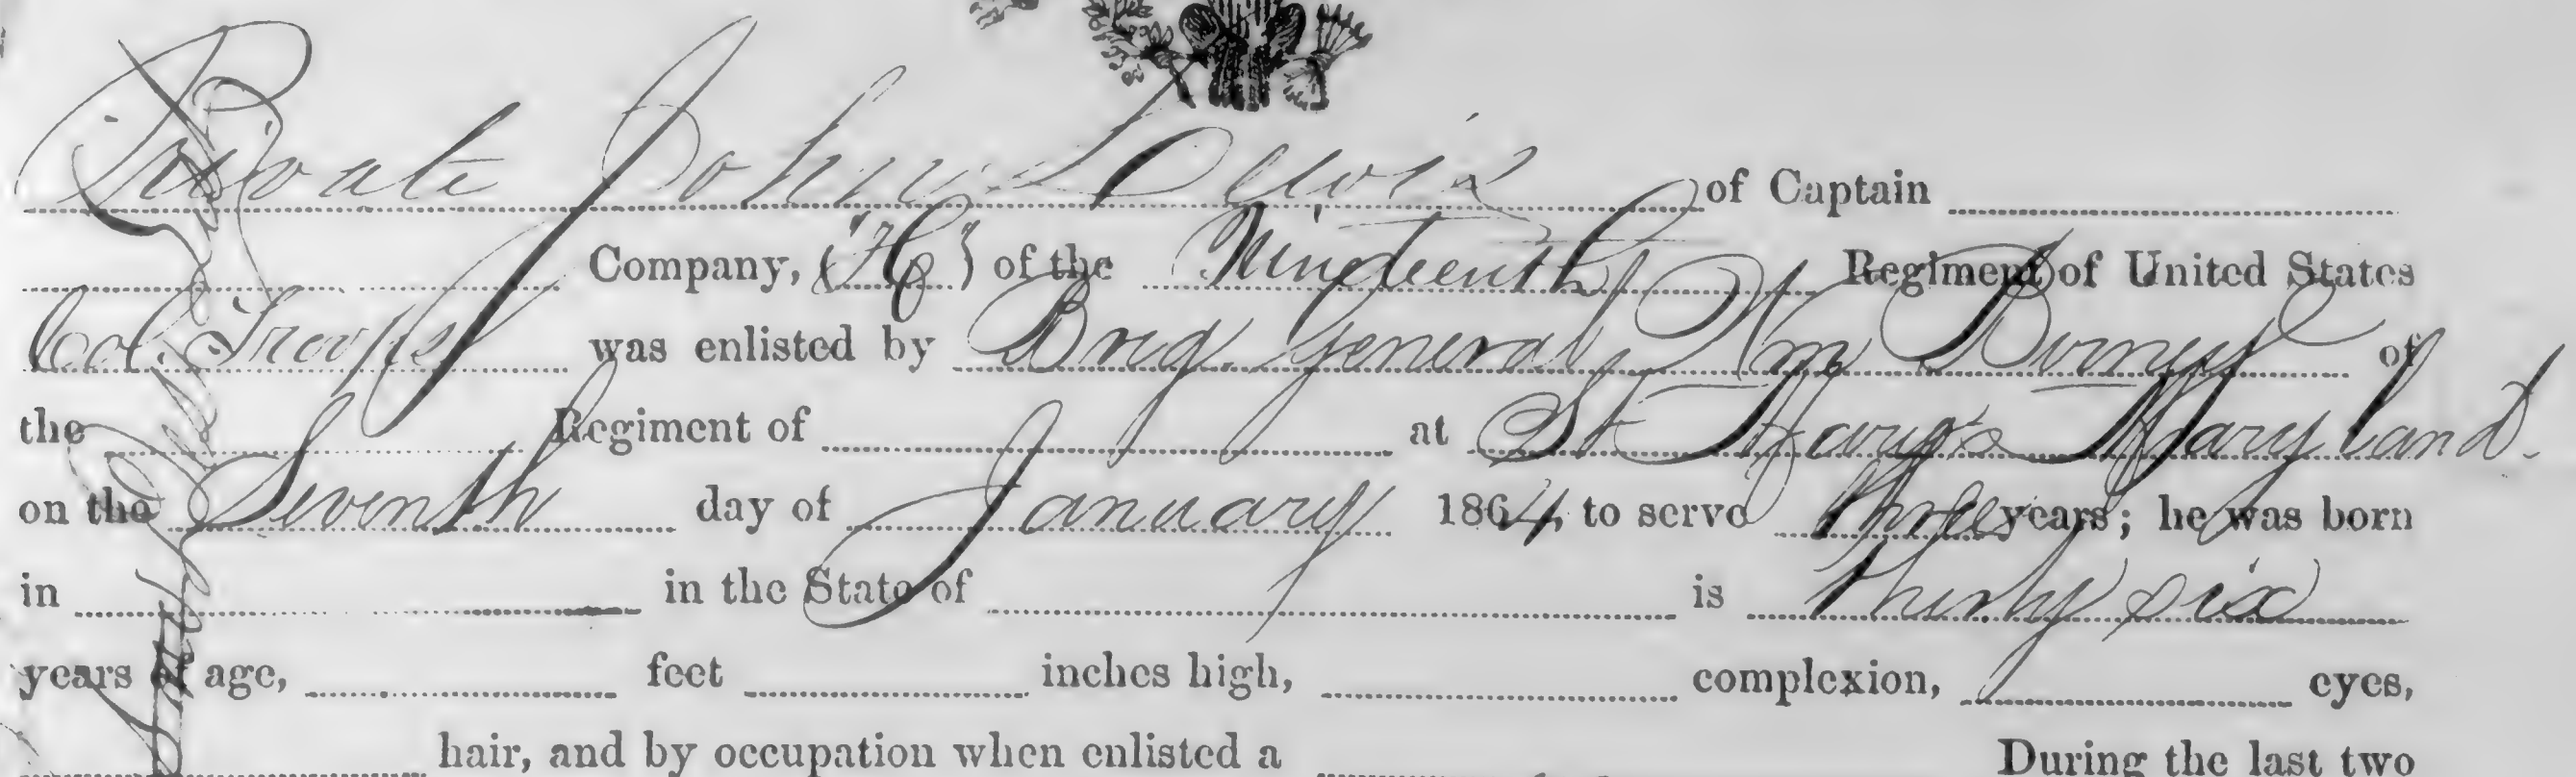 Private John Lewis of Captain
Company, ("H") of the Nineteenth Regiment of United States
Col. Troops was enlisted by Brig. General Wm Birney of
the Regiment of at St Mary's Maryland.
on the Seventh day of January 1864, to serve three years; he was born
in in the State of is thirty six
years of age, feet inches high, complexion, eyes,
hair, and by occupation when enlisted a During the last two